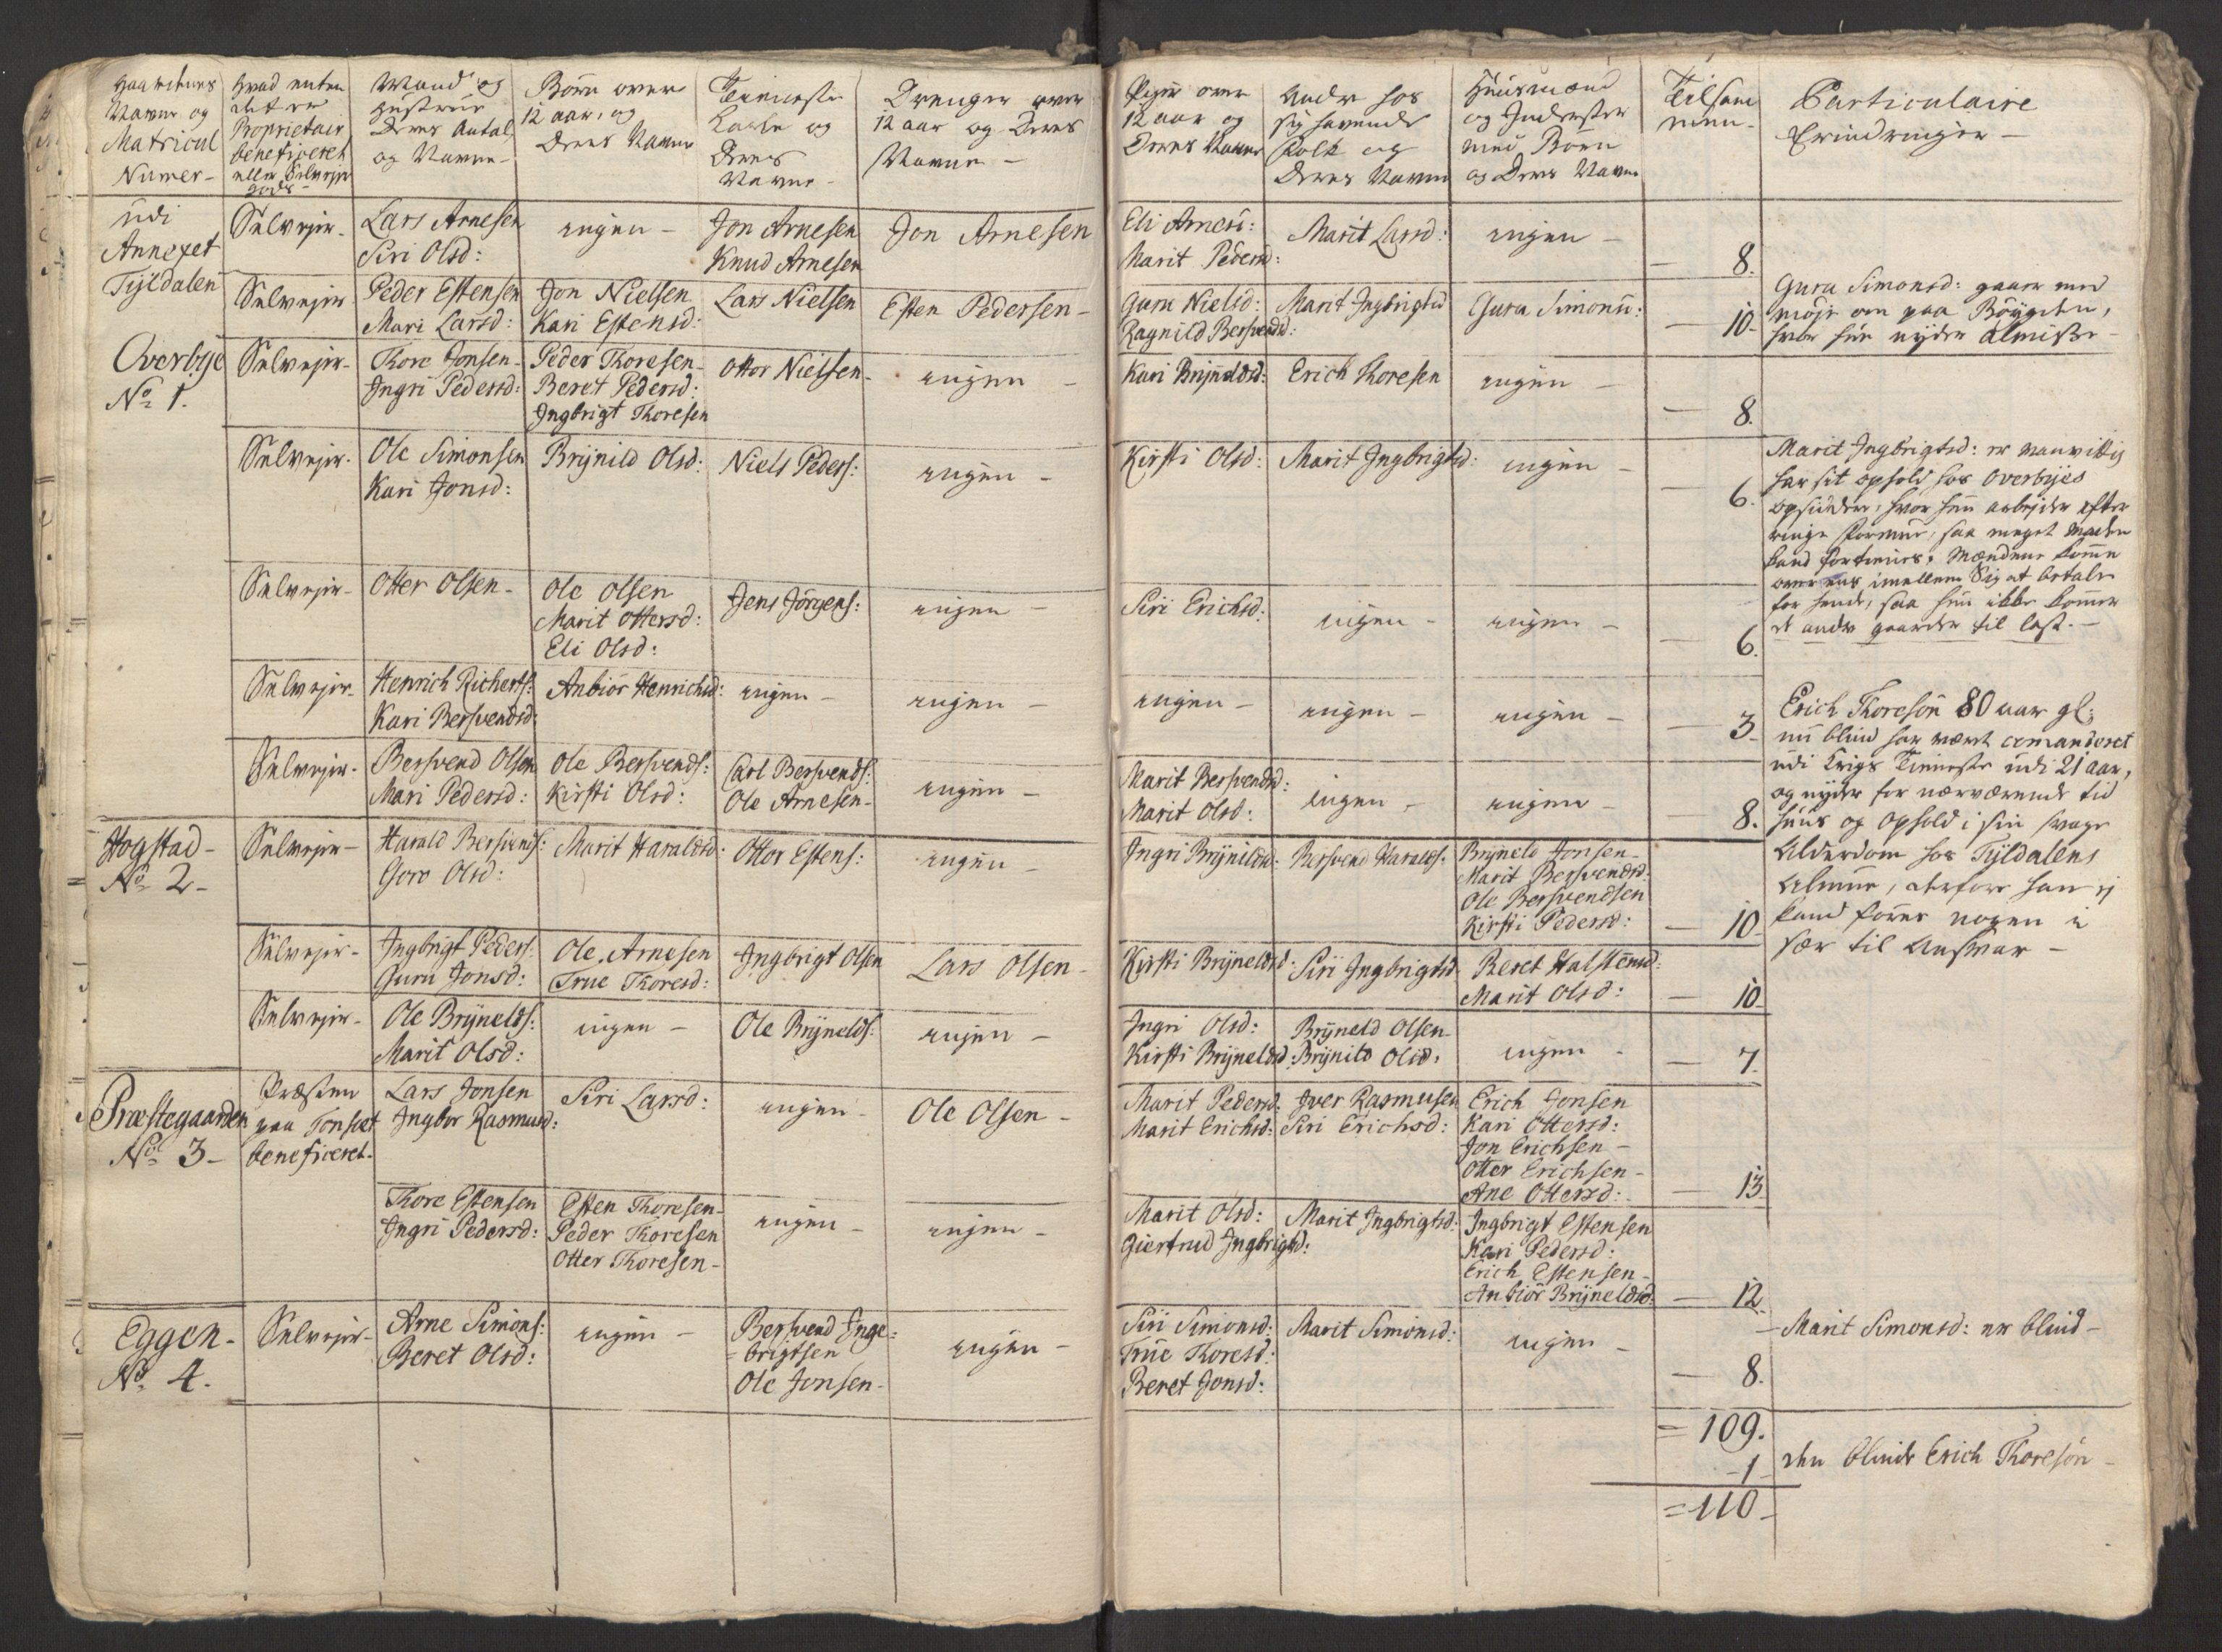 Gaardenes
Navne og
Matricul
Numer-
Hvad enten
det er
Proprietair
beneficeret
eller Selvejer
gods-
Mand og
Hustrue
Deres Antal
og Navne-
Børn over
12 aar, og
Deres Navne
Tieneste
Karle og
Deres
Navne-
Drenger over
12 aar og Deres
Navne-
Piger over
12 aar og
Deres Navne
Andre hos
sig havende
Folk og
Deres Navne
Huusmænd
og Inderster
med Børn
og Deres Navne
Tilsam
men-
Particulaire
Erindringer-
udi
Annexet
Tÿldalen
Overbÿe
No 1.
Selvejer-
Lars Arnesen
Siri Olsd:
ingen-
Jon Arnesen
Knud Arnesen
Jon Arnesen
Eli Arnesd:
Marit Pedersd:
Marit Larsd:
ingen-
8.
Selvejer
Peder Estensen
Mari Larsd:
Jon Nielsen
Kari Estensd:
Lars Nielsen
Esten Pedersen-
Guru Nielsd:
Ragnild Bersvendsd:
Marit Ingbrigtsd
Gura Simonsd:
10-
Gura Simonsd: gaaer med
møje om paa Bøÿgden,
hvor hun nyder almisse-
Selvejer-
Thore Jonsen-
Ingri Pedersd:
Peder Thoresen-
Beret Pedersd:
Ingbrigt Thoresen
Ottor Nielsen-
ingen-
Kari Brÿneldsd:
Erich Thoresen
ingen-
8.
Selvejer-
Ole Simonsen
Kari Jonsd:
Brÿnild Olsd:
Niels Peders:
ingen-
Kirsti Olsd:
Marit Ingbrigtsd:
ingen-
6.
Marit Ingbrigtsd: er vanvittig
har sit ophold hos Overbÿes
opsiddere, hvor hun arbejder efter
ringe Formue, saa meget maden
kand fortienes. Mændene komme
over eens imellem Sig at betale
for hende, saa hun ikke kommer
de andre gaarder til last.-
Selvejer-
Otter Olsen-
Ole Olsen
Marit Ottersd:
Eli Olsd:
Jens Jörgens:
ingen-
Siri Erichsd:
ingen-
ingen-
6.
Selvejer-
Henrich Richerts:
Kari Bersvendsd:
Anbiör Henrichsd:
ingen-
ingen-
ingen-
ingen-
ingen-
3-
Erich Thoresön 80 aar gl:
nu blind har været commanderet
udi Krigs Tieneste udi 21 aar,
og nyder for nærværende tid
huus og Ophold i sin svage
Alderdom hos Tÿldalens
Almue, derfore han ej
kand føres nogen i
sær til Ansvar-
Selvejer-
Bersvend Olsen
Mari Pedersd:
Ole Bersvends:
Kirsti Olsd:
Carl Bersvends:
Ole Arnesen-
ingen-
Marit Bersvendsd:
Marit Olsd:
ingen-
ingen-
8.
Hogstad-
No 2-
Selvejer-
Harald Bersvends:
Goro Olsd:
Marit Haraldsd:
Ottor Estens:
ingen-
Ingri Brÿnildsd:
Bersvend Haralds:
Brÿneld Jonsen-
Marit Bersvendsd.
Ole Bersvendsen
Kirsti Pedersd:
10-
Selvejer-
Ingbrigt Peders:
Guru Jonsd:
Ole Arnesen
True Thoresd:
Ingbrigt Olsen
Lars Olsen-
Kirsti Brÿneldsd:
Siri Ingbrigtsd.
Beret Halstensd:
Marit Olsd:
10-
Selvejer-
Ole Brÿnelds:
Marit Olsd:
ingen-
Ole Brÿnelds:
ingen-
Ingri Olsd:
Kirsti Brÿneldsd:
Brÿneld Olsen-
Brÿnild Olsd:
ingen-
7-
Præstegaarden
No 3-
Præsten
paa Tonset
beneficeret-
Lars Jonsen
Ingbor Rasmusd:
Siri Larsd:
ingen-
Ole Olsen-
Marit Pedersd:
Marit Erichsd:
Iver Rasmusen
Siri Erichsd:
Erich Jonsen
Kari Ottersd:
Jon Erichsen-
Otter Erichsen-
Ane Ottersd:
13-
Thore Estensen
Ingri Pedersd:
Esten Thoresen-
Peder Thoresen
Otter Thoresen-
ingen-
ingen-
Marit Olsd:
Giertrud Ingbrigtsd:
Marit Ingbrigtsd:
Ingbrigt Estensen
Kari Pedersd:
Erich Estensen-
Anbiör Brÿneldsd.
12
Eggen-
No 4.
Selvejer-
Arne Simons:
Beret Olsd:
ingen-
Bersvend Inge=
=brigtsen
Ole Jonsen-
ingen-
Siri Simonsd:
True Thoresd:
Beret Jonsd:
Marit Simonsd:
ingen-
8.
-Marit Simonsd: er blind-
=109.
-1- den blinde Erich Thoresön-
=110-